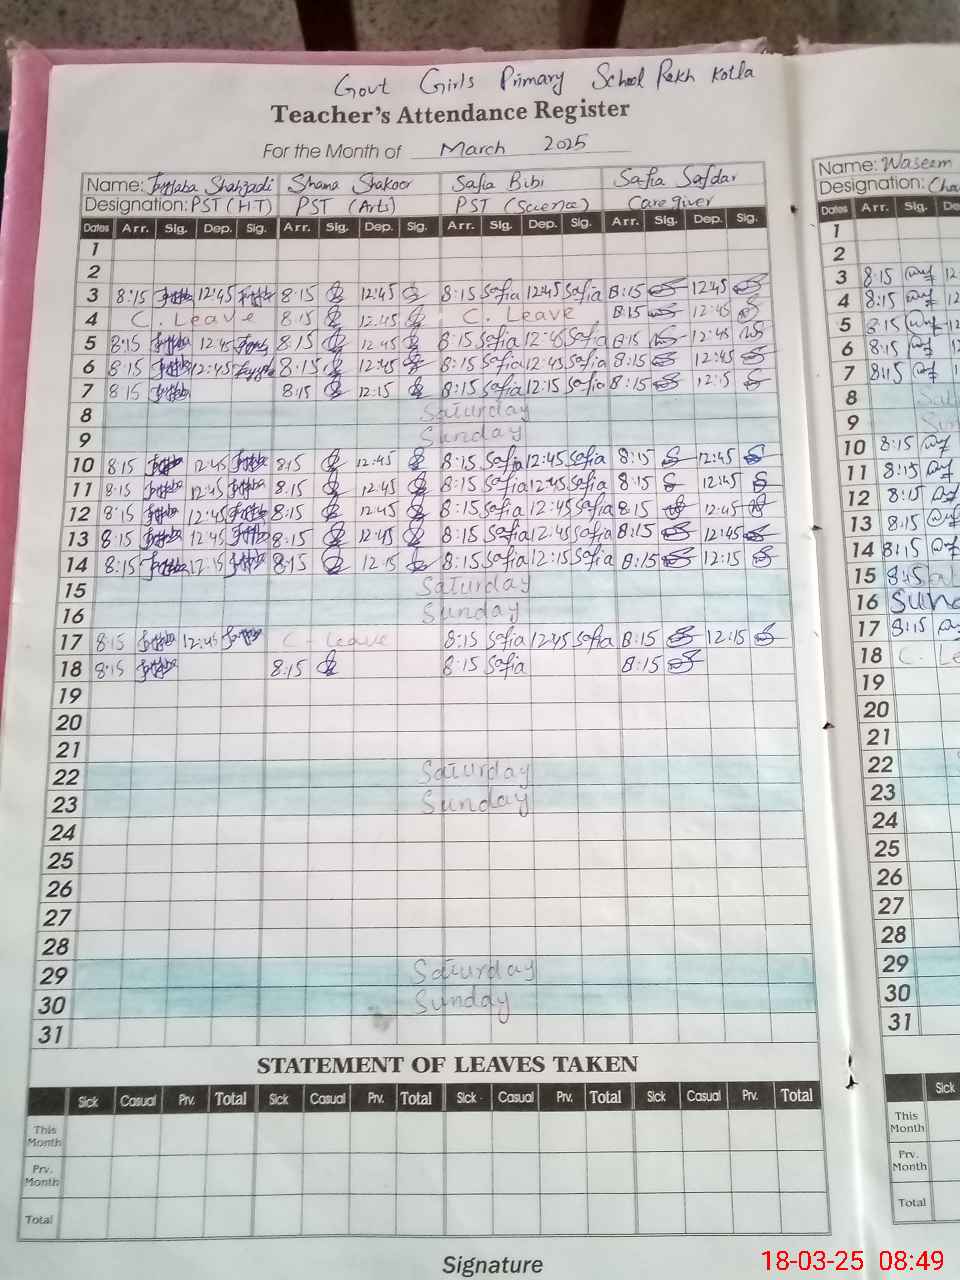 Govt Girls Primary School Rakh Kotla
Teacher's Attendance Register
For the Month of March 2025
Name: Shahzadi Shama Shakoor Safia Bibi Safia Safdar
Designation: PST (H-T) PST (Arts) PST (Science) Care giver
Dates Arr. Sig. Dep. Sig. Arr. Sig. Dep. Sig. Arr. Sig. Dep. Sig. Arr. Sig. Dep. Sig.
1
2
3 8:15 12:45 8:15 12:45 8:15 Safia 12:45 Safia 8:15 12:45
4 C. Leave 8:15 12:45 C. Leave 8:15 12:45
5 8:15 12:45 8:15 12:45 8:15 Safia 12:45 Safia 8:15 12:45
6 8:15 12:45 8:15 12:45 8:15 Safia 12:45 Safia 8:15 12:45
7 8:15 8:15 12:15 8:15 Safia 12:15 Safia 8:15 12:15
8 Saturday
9 Sunday
10 8:15 12:45 8:15 12:45 8:15 Safia 12:45 Safia 8:15 12:45
11 8:15 12:45 8:15 12:45 8:15 Safia 12:45 Safia 8:15 12:45
12 8:15 12:45 8:15 12:45 8:15 Safia 12:45 Safia 8:15 12:45
13 8:15 12:45 8:15 12:45 8:15 Safia 12:45 Safia 8:15 12:45
14 8:15 12:15 8:15 12:15 8:15 Safia 12:15 Safia 8:15 12:15
15 Saturday
16 Sunday
17 8:15 12:45 C - Leave 8:15 Safia 12:45 Safia 8:15 12:15
18 8:15 8:15 8:15 Safia 8:15
19
20
21
22 Saturday
23 Sunday
24
25
26
27
28
29 Saturday
30 Sunday
31
STATEMENT OF LEAVES TAKEN
Sick Casual Prv. Total Sick Casual Prv. Total Sick Casual Prv. Total Sick Casual Prv. Total
This Month
Prv. Month
Total
Signature
Name: Waseem
Designation: Cha
Dates Arr. Sig. De
1
2
3 8:15 12
4 8:15 12
5 8:15 12
6 8:15
7 8:15
8
9
10 8:15
11 8:15
12 8:15
13 8:15
14 8:15
15
16 Sund
17 8:15
18 C. Le
19
20
21
22
23
24
25
26
27
28
29
30
31
Sick
This Month
Prv. Month
Total
18-03-25 08:49